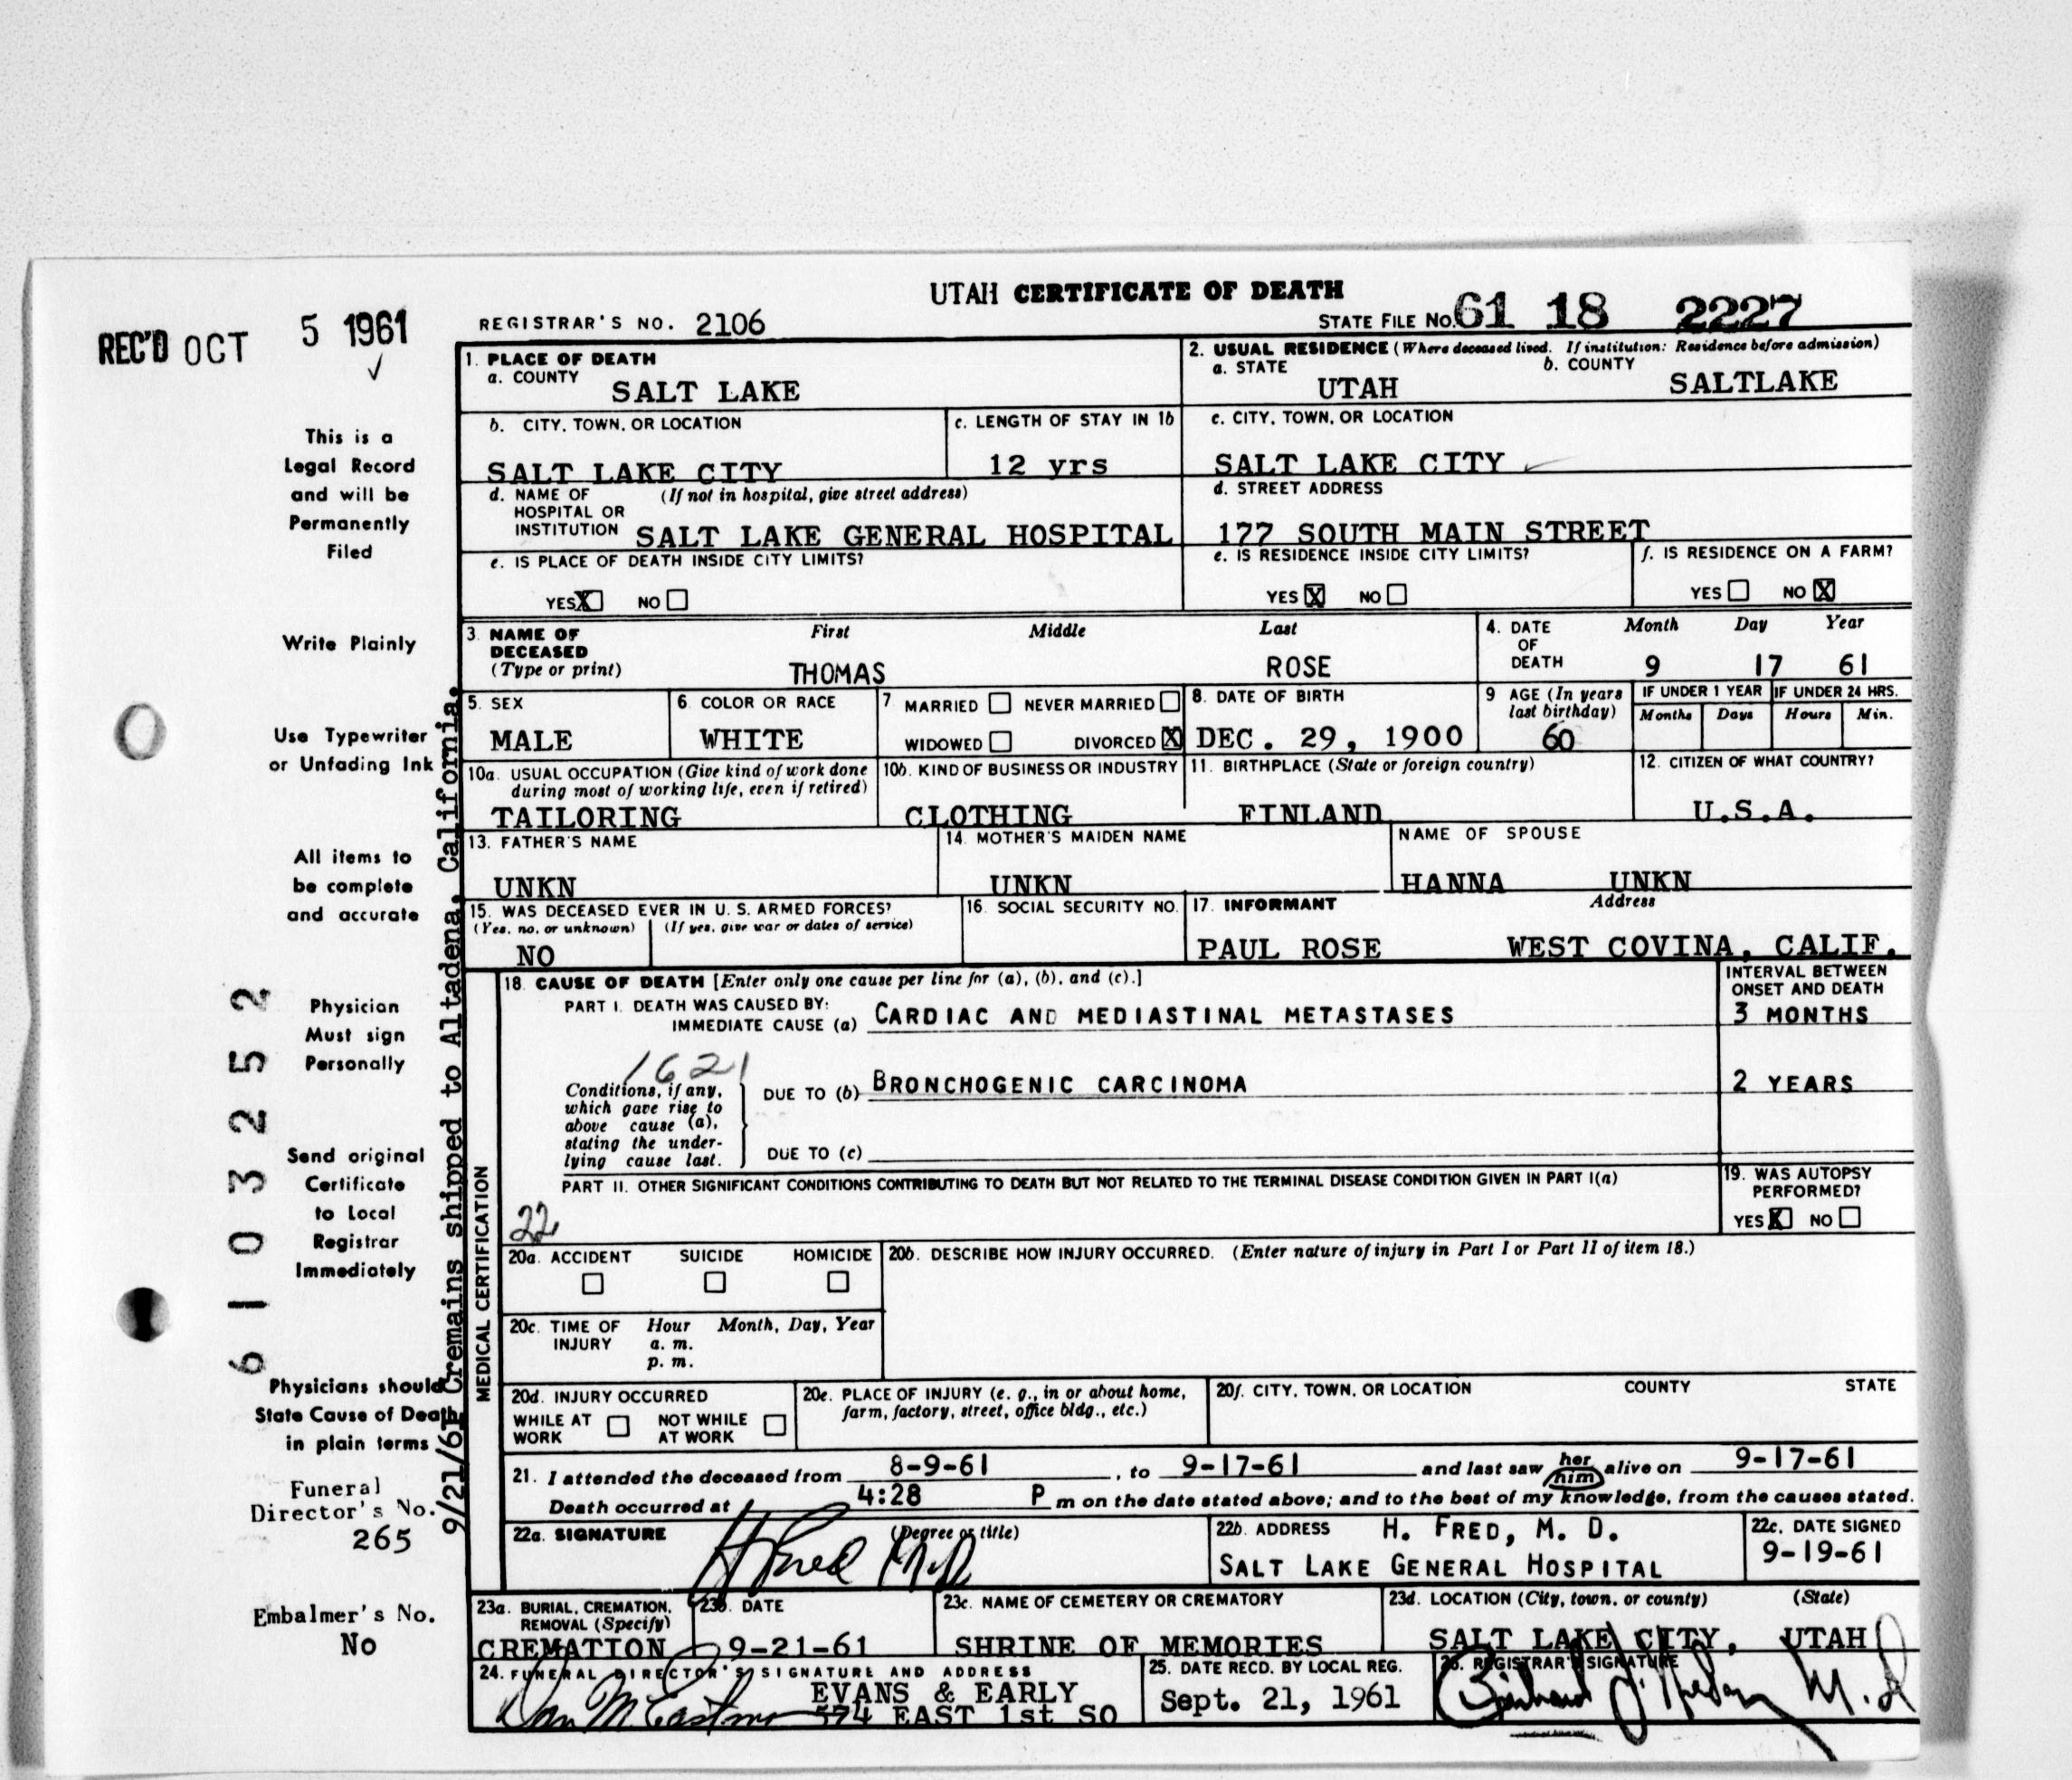 UTAH CERTIFICATE OF DEATH
REC'D OCT 5 1961
REGISTRAR'S NO. 2106
STATE FILE NO. 61 18 2227
1. PLACE OF DEATH
a. COUNTY SALT LAKE
2. USUAL RESIDENCE (Where deceased lived. If institution: Residence before admission)
a. STATE UTAH b. COUNTY SALTLAKE
b. CITY, TOWN, OR LOCATION
SALT LAKE CITY
c. LENGTH OF STAY IN 1b
12 yrs
c. CITY, TOWN, OR LOCATION
SALT LAKE CITY
d. NAME OF (If not in hospital, give street address)
HOSPITAL OR
INSTITUTION SALT LAKE GENERAL HOSPITAL
d. STREET ADDRESS
177 SOUTH MAIN STREET
e. IS PLACE OF DEATH INSIDE CITY LIMITS?
YES X NO
e. IS RESIDENCE INSIDE CITY LIMITS?
YES X NO
f. IS RESIDENCE ON A FARM?
YES NO X
3. NAME OF DECEASED (Type or print)
First Middle Last
THOMAS ROSE
4. DATE OF DEATH
Month Day Year
9 17 61
5. SEX
MALE
6. COLOR OR RACE
WHITE
7. MARRIED NEVER MARRIED
WIDOWED DIVORCED X
8. DATE OF BIRTH
DEC. 29, 1900
9 AGE (In years last birthday)
60
IF UNDER 1 YEAR
Months Days
IF UNDER 24 HRS.
Hours Min.
10a. USUAL OCCUPATION (Give kind of work done
during most of working life, even if retired)
TAILORING
10b. KIND OF BUSINESS OR INDUSTRY
CLOTHING
11. BIRTHPLACE (State or foreign country)
FINLAND
12. CITIZEN OF WHAT COUNTRY?
U.S.A.
13. FATHER'S NAME
UNKN
14. MOTHER'S MAIDEN NAME
UNKN
NAME OF SPOUSE
HANNA UNKN
15. WAS DECEASED EVER IN U. S. ARMED FORCES?
(Yes, no, or unknown) (If yes, give war or dates of service)
NO
16. SOCIAL SECURITY NO.
17. INFORMANT Address
PAUL ROSE WEST COVINA, CALIF.
MEDICAL CERTIFICATION
18. CAUSE OF DEATH [Enter only one cause per line for (a), (b), and (c).]
INTERVAL BETWEEN
ONSET AND DEATH
PART I. DEATH WAS CAUSED BY:
IMMEDIATE CAUSE (a) CARDIAC AND MEDIASTINAL METASTASES
3 MONTHS
1621
Conditions, if any,
which gave rise to
above cause (a),
stating the under-
lying cause last.
DUE TO (b) BRONCHOGENIC CARCINOMA
2 YEARS
DUE TO (c)
PART II. OTHER SIGNIFICANT CONDITIONS CONTRIBUTING TO DEATH BUT NOT RELATED TO THE TERMINAL DISEASE CONDITION GIVEN IN PART I(a)
22
19. WAS AUTOPSY
PERFORMED?
YES X NO
20a. ACCIDENT SUICIDE HOMICIDE
20b. DESCRIBE HOW INJURY OCCURRED. (Enter nature of injury in Part I or Part II of item 18.)
20c. TIME OF INJURY
Hour Month, Day, Year
a. m.
p. m.
20d. INJURY OCCURRED
WHILE AT WORK NOT WHILE AT WORK
20e. PLACE OF INJURY (e. g., in or about home,
farm, factory, street, office bldg., etc.)
20f. CITY, TOWN, OR LOCATION COUNTY STATE
21. I attended the deceased from 8-9-61, to 9-17-61 and last saw her him alive on 9-17-61
Death occurred at 4:28 P m on the date stated above; and to the best of my knowledge, from the causes stated.
22a. SIGNATURE (Degree or title)
H Fred M.D.
22b. ADDRESS H. FRED, M. D.
SALT LAKE GENERAL HOSPITAL
22c. DATE SIGNED
9-19-61
23a. BURIAL, CREMATION,
REMOVAL (Specify)
CREMATION
23b. DATE
9-21-61
23c. NAME OF CEMETERY OR CREMATORY
SHRINE OF MEMORIES
23d. LOCATION (City, town, or county) (State)
SALT LAKE CITY, UTAH
24. FUNERAL DIRECTOR'S SIGNATURE AND ADDRESS
EVANS & EARLY
574 EAST 1st SO
25. DATE RECD. BY LOCAL REG.
Sept. 21, 1961
26. REGISTRAR'S SIGNATURE
M.D
This is a
Legal Record
and will be
Permanently
Filed
Write Plainly
Use Typewriter
or Unfading Ink
All items to
be complete
and accurate
Physician
Must sign
Personally
Send original
Certificate
to Local
Registrar
Immediately
Physicians should
State Cause of Death
in plain terms
Funeral
Director's No.
265
Embalmer's No.
No
6103252
9/21/61 Cremains shipped to Altadena, California.